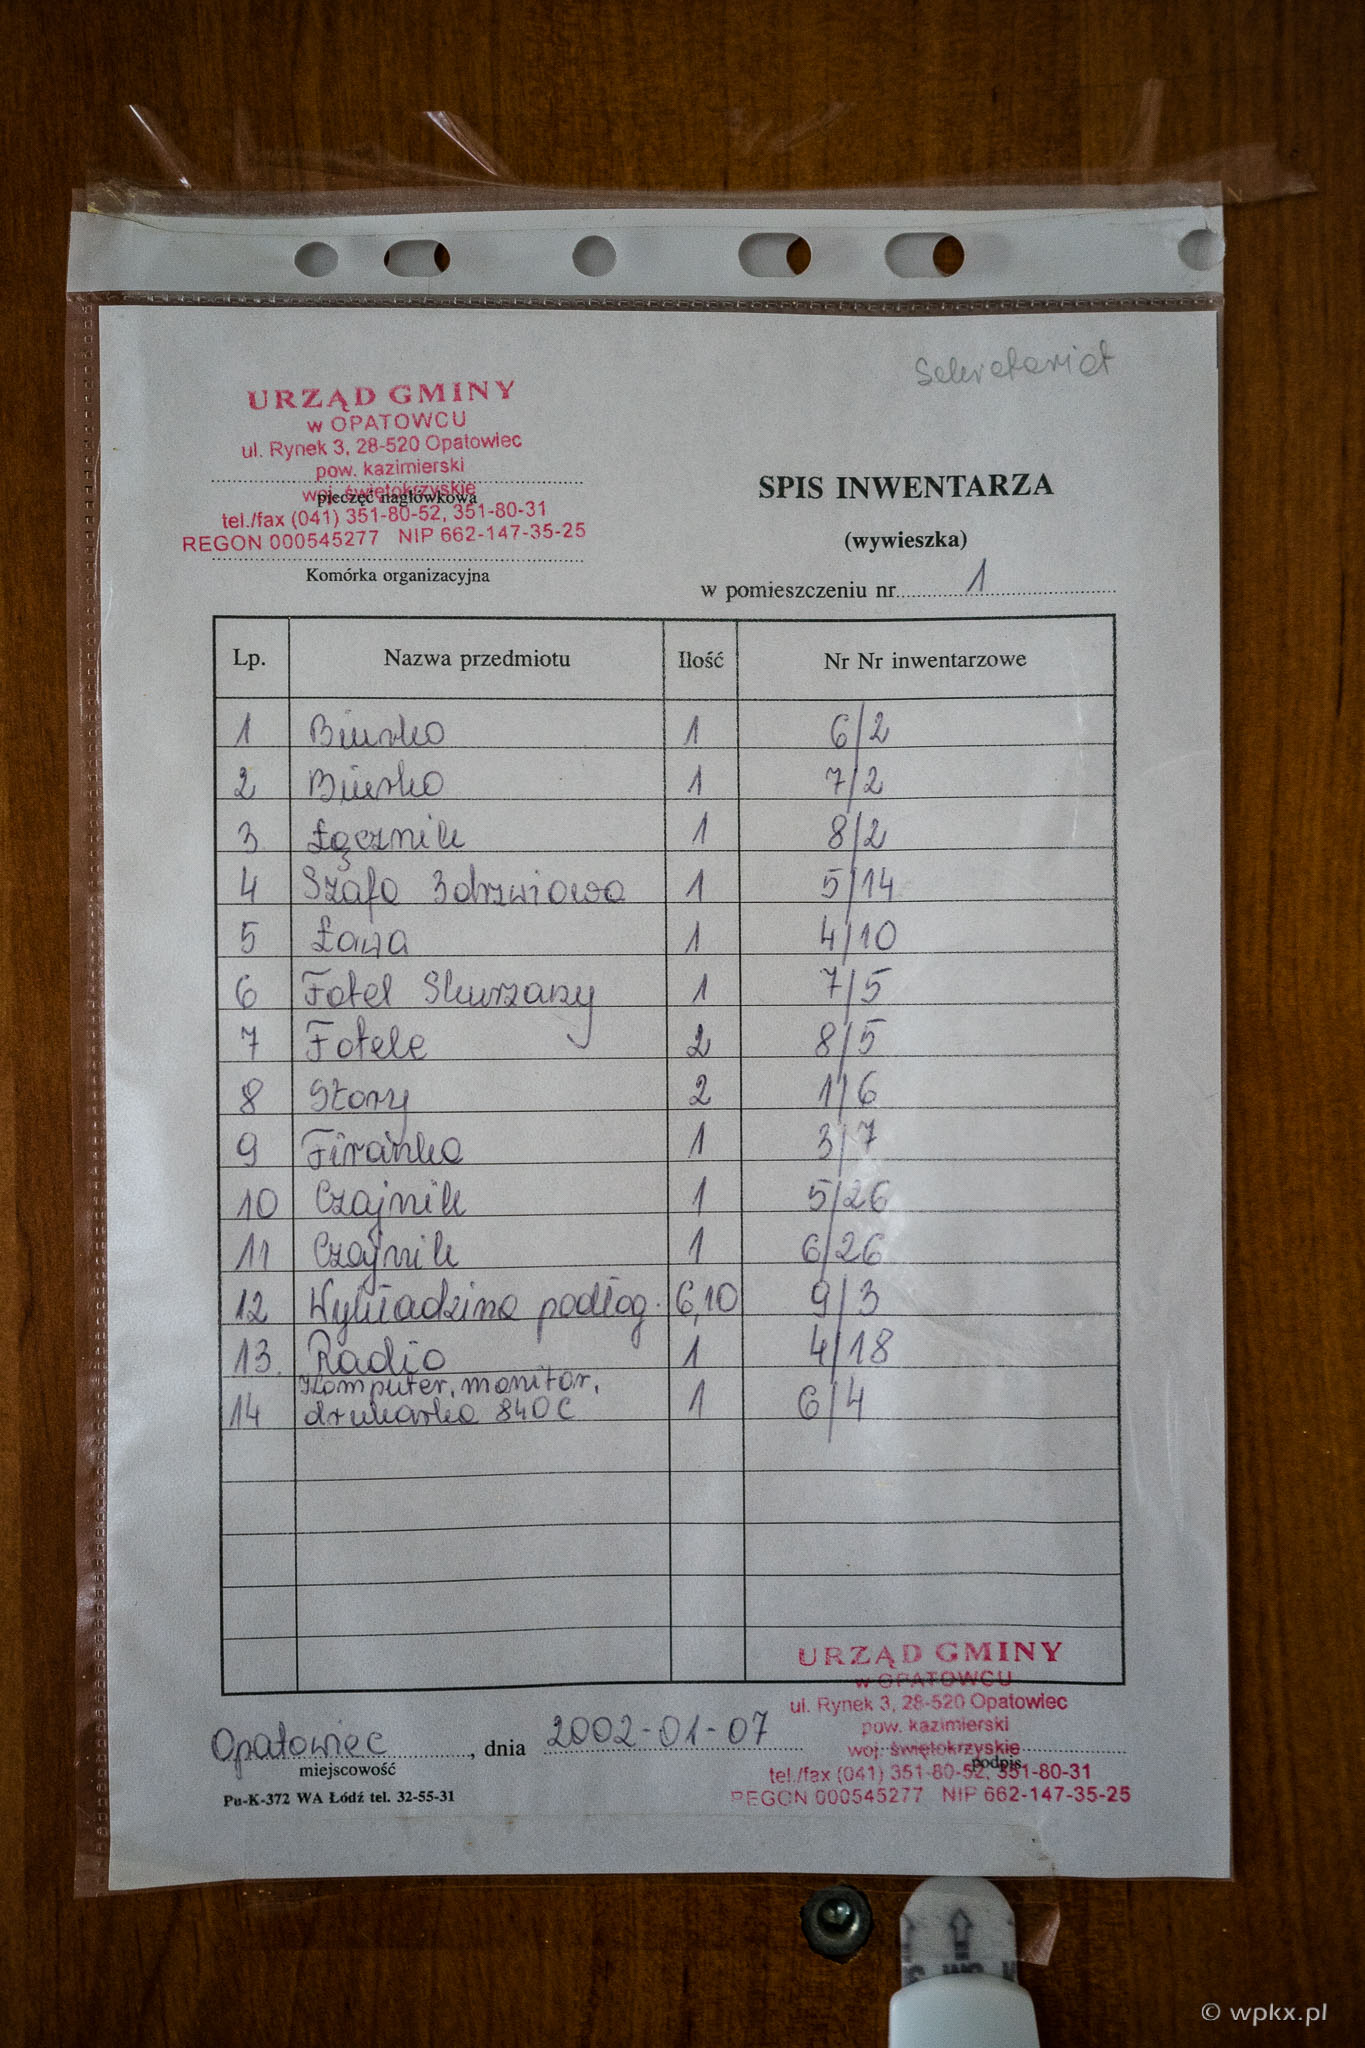 Sekretariat
URZĄD GMINY
w OPATOWCU
ul. Rynek 3, 28-520 Opatowiec
pow. kazimierski
woj. świętokrzyskie
pieczęć nagłówkowa
tel./fax (041) 351-80-52, 351-80-31
REGON 000545277 NIP 662-147-35-25
Komórka organizacyjna
SPIS INWENTARZA
(wywieszka)
w pomieszczeniu nr 1
Lp. Nazwa przedmiotu Ilość Nr Nr inwentarzowe
1 Biurko 1 6/2
2 Biurko 1 7/2
3 Łącznik 1 8/2
4 Szafa 3drzwiowa 1 5/14
5 Ława 1 4/10
6 Fotel Skurzany 1 7/5
7 Fotele 2 8/5
8 Story 2 1/6
9 Firanka 1 3/7
10 Czajnik 1 5/26
11 Czajnik 1 6/26
12 Wykładzina podłog. 6,10 9/3
13. Radio 1 4/18
14 Komputer, monitor, 1 6/4
drukarka 840C
URZĄD GMINY
w OPATOWCU
ul. Rynek 3, 28-520 Opatowiec
pow. kazimierski
woj. świętokrzyskie
Opatowiec, dnia 2002-01-07
miejscowość podpis
tel./fax (041) 351-80-52, 351-80-31
REGON 000545277 NIP 662-147-35-25
Pu-K-372 WA Łódź tel. 32-55-31
© wpkx.pl